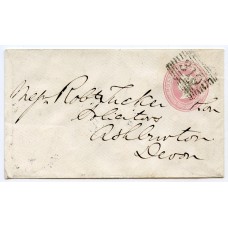 Messrs Robt Tucker & Son
Solicitors
Ashburton
Devon